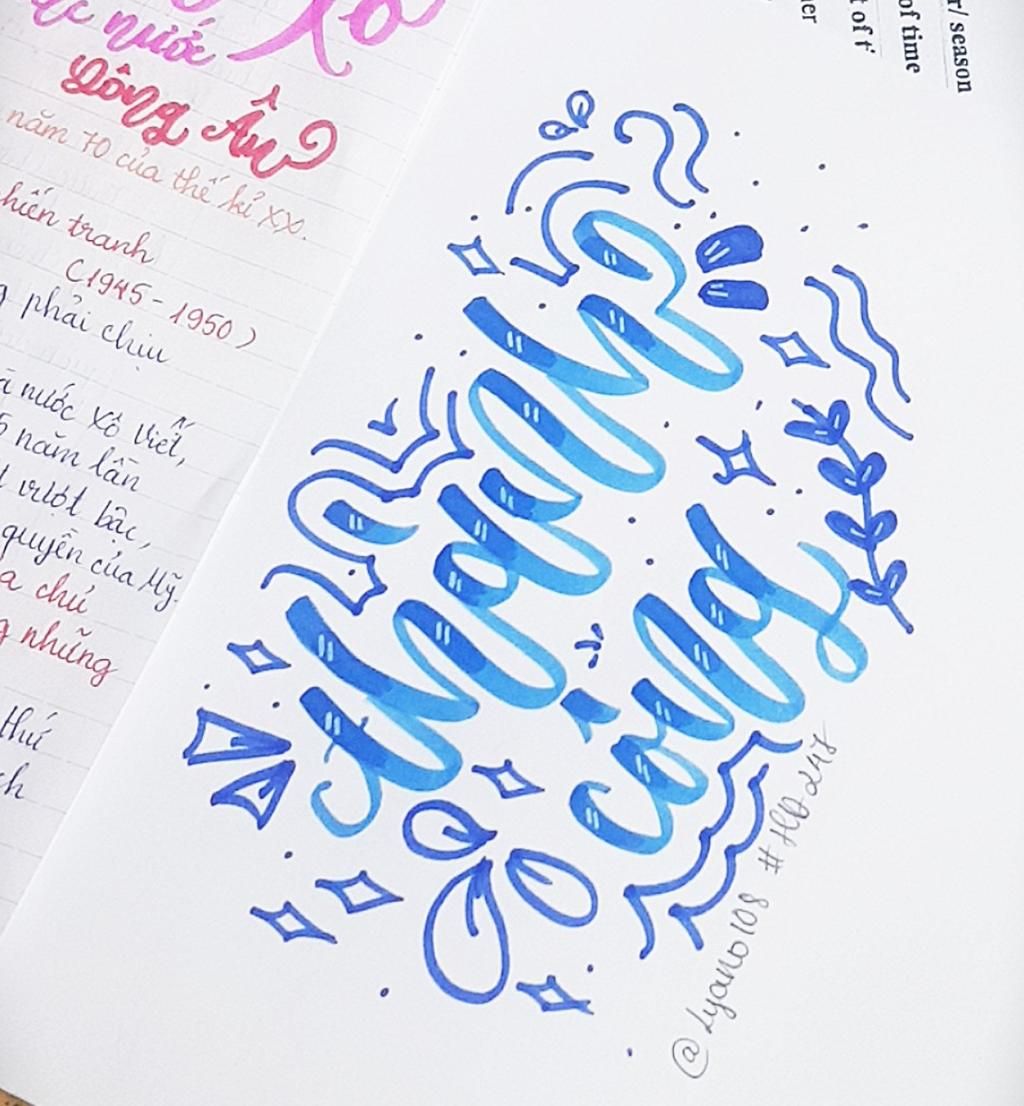 nước Xô
Đông Âu
năm 70 của thế kỉ XX.
hiến tranh
(1945-1950)
phải chịu
nước Xô Viết,
5 năm lần
vượt bậc,
quyền của Mỹ.
a chủ
g những
thứ
ch
r/ season
of time
t of t
her
thành
công
@Lyano108 #HĐ247